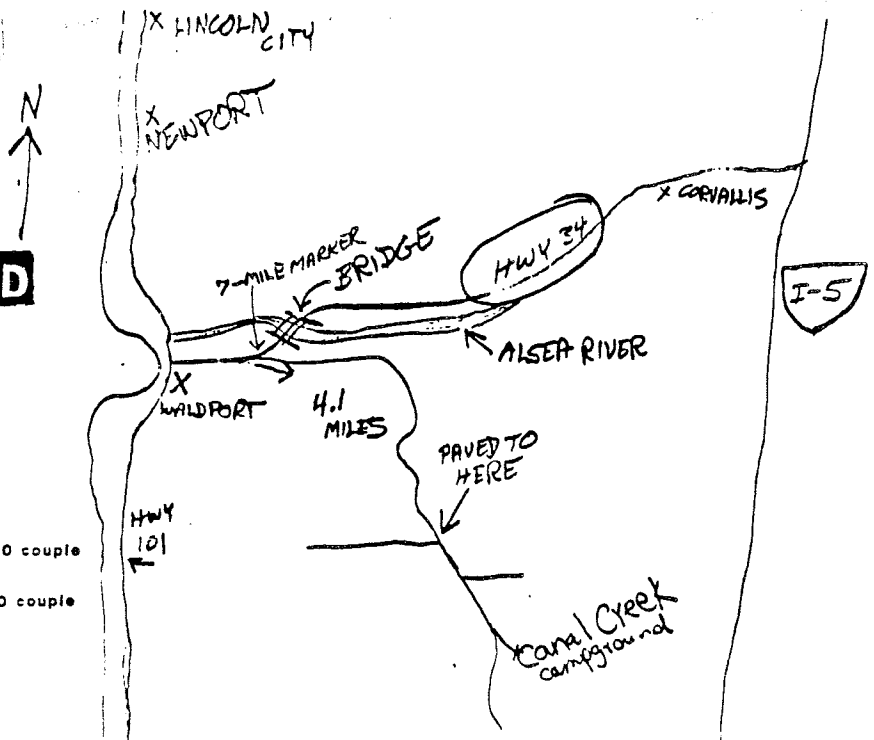 X LINCOLN
CITY
N
X
NEWPORT
D
X CORVALLIS
HWY 34
7-MILE MARKER
BRIDGE
I-5
ALSEA RIVER
X
WALDPORT
4.1
MILES
PAVED TO
HERE
HWY
101
0 couple
0 couple
Canal Creek
campground